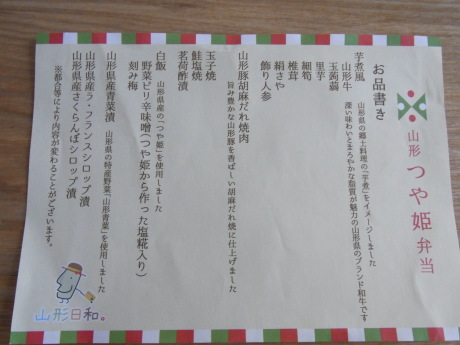 山形 つや姫 弁当
お品書き
芋煮風 山形県の郷土料理の「芋煮」をイメージしました
山形牛 深い味わいとまろやかな脂質が魅力の山形県のブランド和牛です
玉蒟蒻
里芋
細筍
椎茸
絹さや
飾り人参
山形豚胡麻だれ焼肉
旨み豊かな山形豚を香ばしい胡麻だれ焼に仕上げました
玉子焼
鮭塩焼
茗荷酢漬
白飯 山形県産の「つや姫」を使用しました
野菜ピリ辛味噌(つや姫から作った塩糀入り)
刻み梅
山形県産青菜漬 山形県の特産野菜「山形青菜」を使用しました
山形県産ラ・フランスシロップ漬
山形県産さくらんぼシロップ漬
※都合等により内容が変わることがございます。
山形日和。